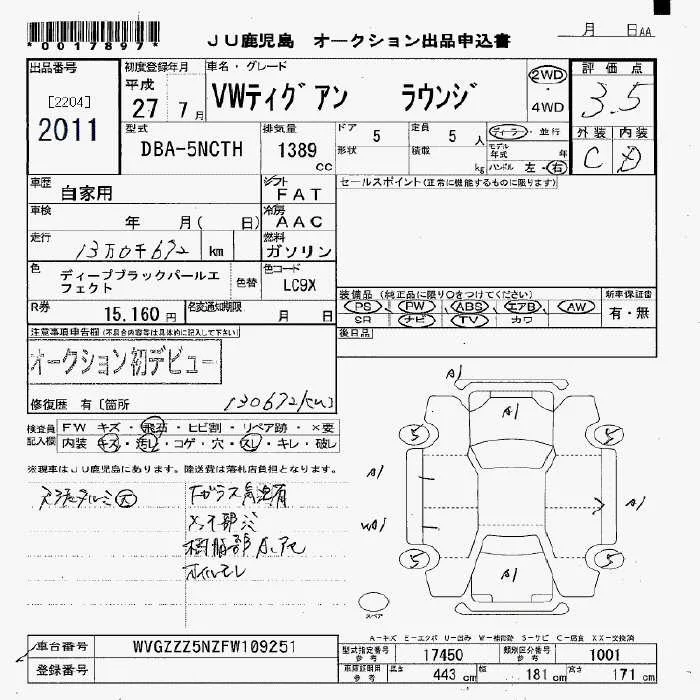 *0017897*
JU鹿児島 オークション出品申込書
月 日AA
出品番号
[2204]
2011
初度登録年月
平成
27 7月
車名・グレード
VWティグアン ラウンジ
2WD
・
4WD
評価点
3.5
型式
DBA-5NCTH
排気量
1389
cc
ドア 5
形状
定員 5 人
積載 kg
ディーラー・並行
モデル年式 年
ハンドル 左・右
外装 内装
C D
車歴
自家用
シフト
FAT
セールスポイント(正常に機能するものに限ります)
車検
年 月( 日)
冷房
AAC
走行
13万0千672 km
燃料
ガソリン
色
ディープブラックパールエフェクト
色替
色コード
LC9X
R券
15,160円
名変通知期限
月 日
装備品 (純正品に限り○をつけてください)
PS PW ABS エアB AW
SR ナビ TV カワ
新車保証書
有・無
後日品
注意事項申告欄(不具合内容等は具体的に記入して下さい)
オークション初デビュー
修復歴 有〔箇所
130672km
検査員
記入欄
FW キズ・飛石・ヒビ割・リペア跡・×要
内装 キズ・汚し・コゲ・穴・スレ・キレ・破し
※現車はJU鹿児島にあります。陸送費は落札店負担となります。
オイルモレ
A1
A1
5 5
A1
A1
WA1
5 5
A1
スペア
A-キズ E-エクボ U-凹み W-補修跡 S-サビ C-腐食 XX-交換済
車台番号
WVGZZZ5NZFW109251
登録番号
型式指定番号
参考
17450
類別区分番号
参考
1001
車検証明書
参考
長さ
443 cm
幅
181 cm
高さ
171 cm